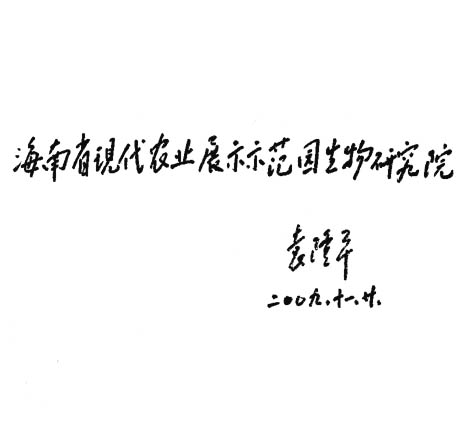 海南省現代农业展示示范园生物研究院
袁隆平
二〇〇九.十一.廿.